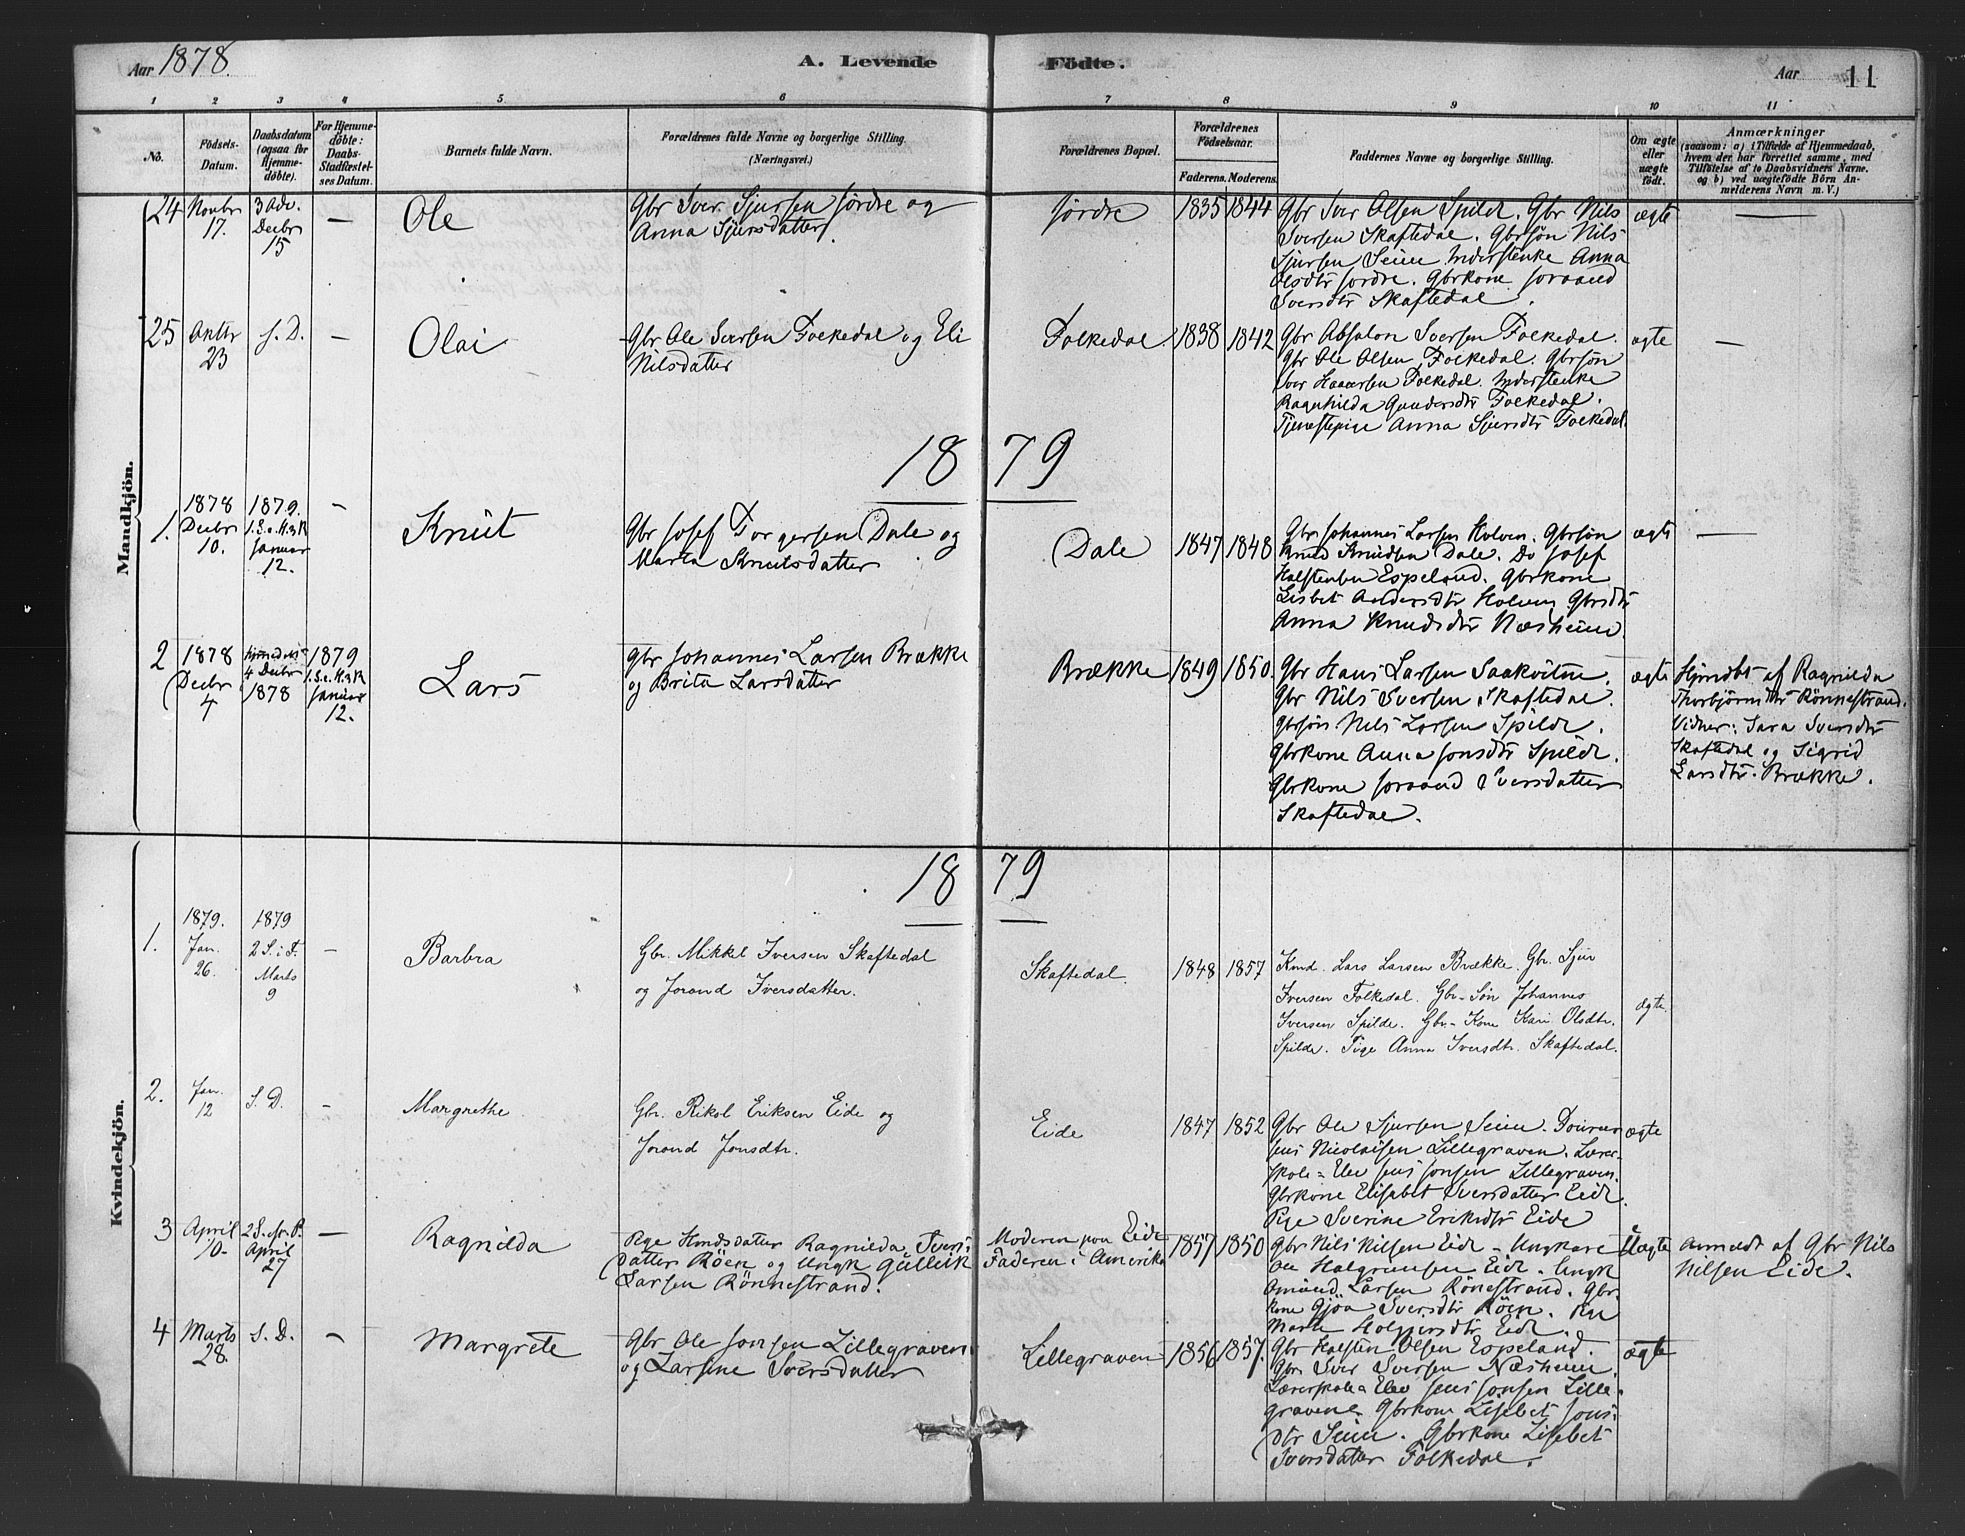 Aar 1878.
A. Levende Födte.
Aar 11
1 2 3 4 5 6 7 8 9 10 11
No.
Födsels-
Datum.
Daabsdatum
(ogsaa for
Hjemme-
döbte).
For Hjemme-
döbte:
Daabs-
Stadfæstel-
ses Datum.
Barnets fulde Navn.
Forældrenes fulde Navne og borgerlige Stilling.
(Næringsvei.)
Forældrenes Bopæl.
Forældrenes
Födselsaar.
Faderens. Moderens.
Faddernes Navne og borgerlige Stilling.
Om ægte
eller
uægte
födt.
Anmærkninger
(saasom: a) i Tilfælde af Hjemmedaab,
hvem der har forrettet samme, med
Tilföielse af to Daabsvidners Navne.
og b) ved uægtefödte Börn An-
melderens Navn m. V.)
Mandkjön.
24
Novbr
17.
3 Adv.
Decbr
15
—
Ole
Gbr Iver Sjursen Jørdre og
Anna Sjursdatter.
Jørdre
1835 1844
Gbr Iver Olsen Spilde. Gbr Nils
Iversen Skaftedal. Gbrsøn Nils
Sjursen Seim Inderstenke Anna
Olsdtr Jørdre. Gbrkone Joraand
Iversdtr Skaftedal.
ægte
—
25
Oktbr
23
s. D.
—
Olai
Gbr Ole Iversen Folkedal og Eli
Nilsdatter
Folkedal
1838 1842
Gbr Absalon Iversen Folkedal.
Gbr Ole Olsen Folkedal. Gbrsøn
Iver Haaversen Folkedal. Inderstenke
Ragnhilda Gundersdtr Folkedal.
Tjenestepige Anna Sjursdtr Folkedal
ægte
—
18 79
1.
1878
Decbr
10.
1879.
1. S. e. H. 3 K
Januar
12.
—
Knut
Gbr Josef Torgersen Dale og
Marta Knutsdatter
Dale
1847 1848
Gbr Johannes Larsen Holven. Gbrsøn
Knud Knudsen Dale. Do Josef
Halstensen Espeland. Gbrkone
Lisbet Andersdtr Holven Gbrsdtr
Anna Knudsdtr Næsheim
ægte
—
2
1878
Decbr
4
Hjemdøbt
4 Decbr
1878
1879
1. S. e. H. 3 K
Januar
12.
Lars
Gbr Johannes Larsen Brække
og Brita Larsdatter
Brække
1849 1850.
Gbr Hans Larsen Saakvitne.
Gbr Nils Iversen Skaftedal.
Gbrsøn Nils Larsen Spilde.
Gbrkone Anna Jonsdtr Spilde.
Gbrkone Joraand Iversdatter
Skaftedal.
ægte
Hjmdbt af Ragnilda
Thorbjørnsdtr Rønnestrand.
Vidner: Sara Iversdtr
Skaftedal og Sigrid
Larsdtr Brække.
18 79
Kvindekjön.
1.
1879.
Jan.
26.
1879
2 S. i F.
Marts
9
—
Barbra
Gbr. Mikkel Iversen Skaftedal
og Jorand Iversdatter.
Skaftedal.
1848 1857
Kmd. Lars Larsen Brække. Gbr. Sjur
Iversen Folkedal. Gbr-Søn Johannes
Iversen Spilde. Gbr-Kone Kari Olsdtr.
Spilde. Pige Anna Iversdtr. Skaftedal.
ægte.
2.
Jan.
12
S. D.
—
Margrethe.
Gbr. Rikol Eriksen Eide og
Jorand Jonsdtr.
Eide
1847 1852
Gbr Ole Sjursen Seim.
Jens Nicolaisen Lillegraven. Lærer-
skole-Elev Jens Jonsen Lillegraven.
Gbrkone Elisabet Iversdatter Eide.
Pige Iverine Eriksdtr Eide
ægte
3
April
10.
2 S. e. P.
April
27
—
Ragnilda
Pige Ragnilda Ivers-
datter Røen og Ungk Gulleik
Larsen Rønnestrand.
Moderen paa Eide
Faderen i Amerika
1857 1850
Gbr Nils Nilsen Eide — Ungkare
Ole Halgrimsen Eide. Ungk
Amund Larsen Rønestrand. Gbr-
kone Gjøa Iversdtr Røen. Pige
Marta Eide.
Uægte
Anmeldt af Gbr Nils
Nilsen Eide.
4
Marts
28.
S. D.
—
Margrete
Gbr Ole Jonsen Lillegraven
og Larsine Iversdatter
Lillegraven
1856 1857.
Gbr Halsten Olsen Espeland.
Gbr Iver Iversen Næsheim.
Lærerskole Elev Jens Jonsen Lille-
graven. Gbrkone Lisebet Jons-
dtr Seim. Gbrkone Lisebet
Iversdatter Folkedal.
ægte